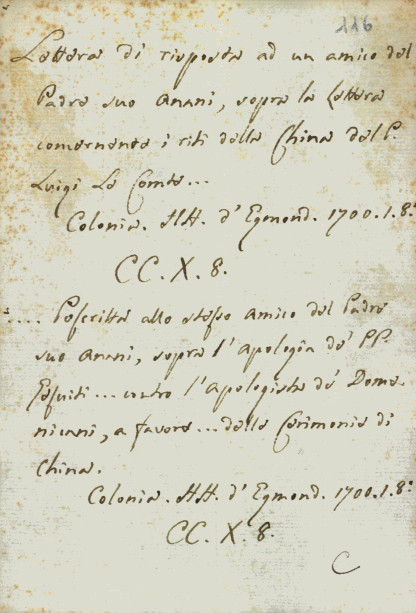 116
Lettera di risposta ad un amico del
Padre suo Anani, sopra la Lettera
concernente i riti della China del P.
Luigi Le Comte...
Colonia. HH. d'Egmond. 1700. 1. 8:
CC. X. 8.
.... Poscritta allo stesso Amico del Padre
suo Anani, sopra l'Apologia de' PP.
Gesuiti... contro l'Apologista de' Dome-
nicani, a favore... delle Cerimonie di
China.
Colonia. HH. d'Egmond. 1700. 1. 8:
CC. X. 8.
C